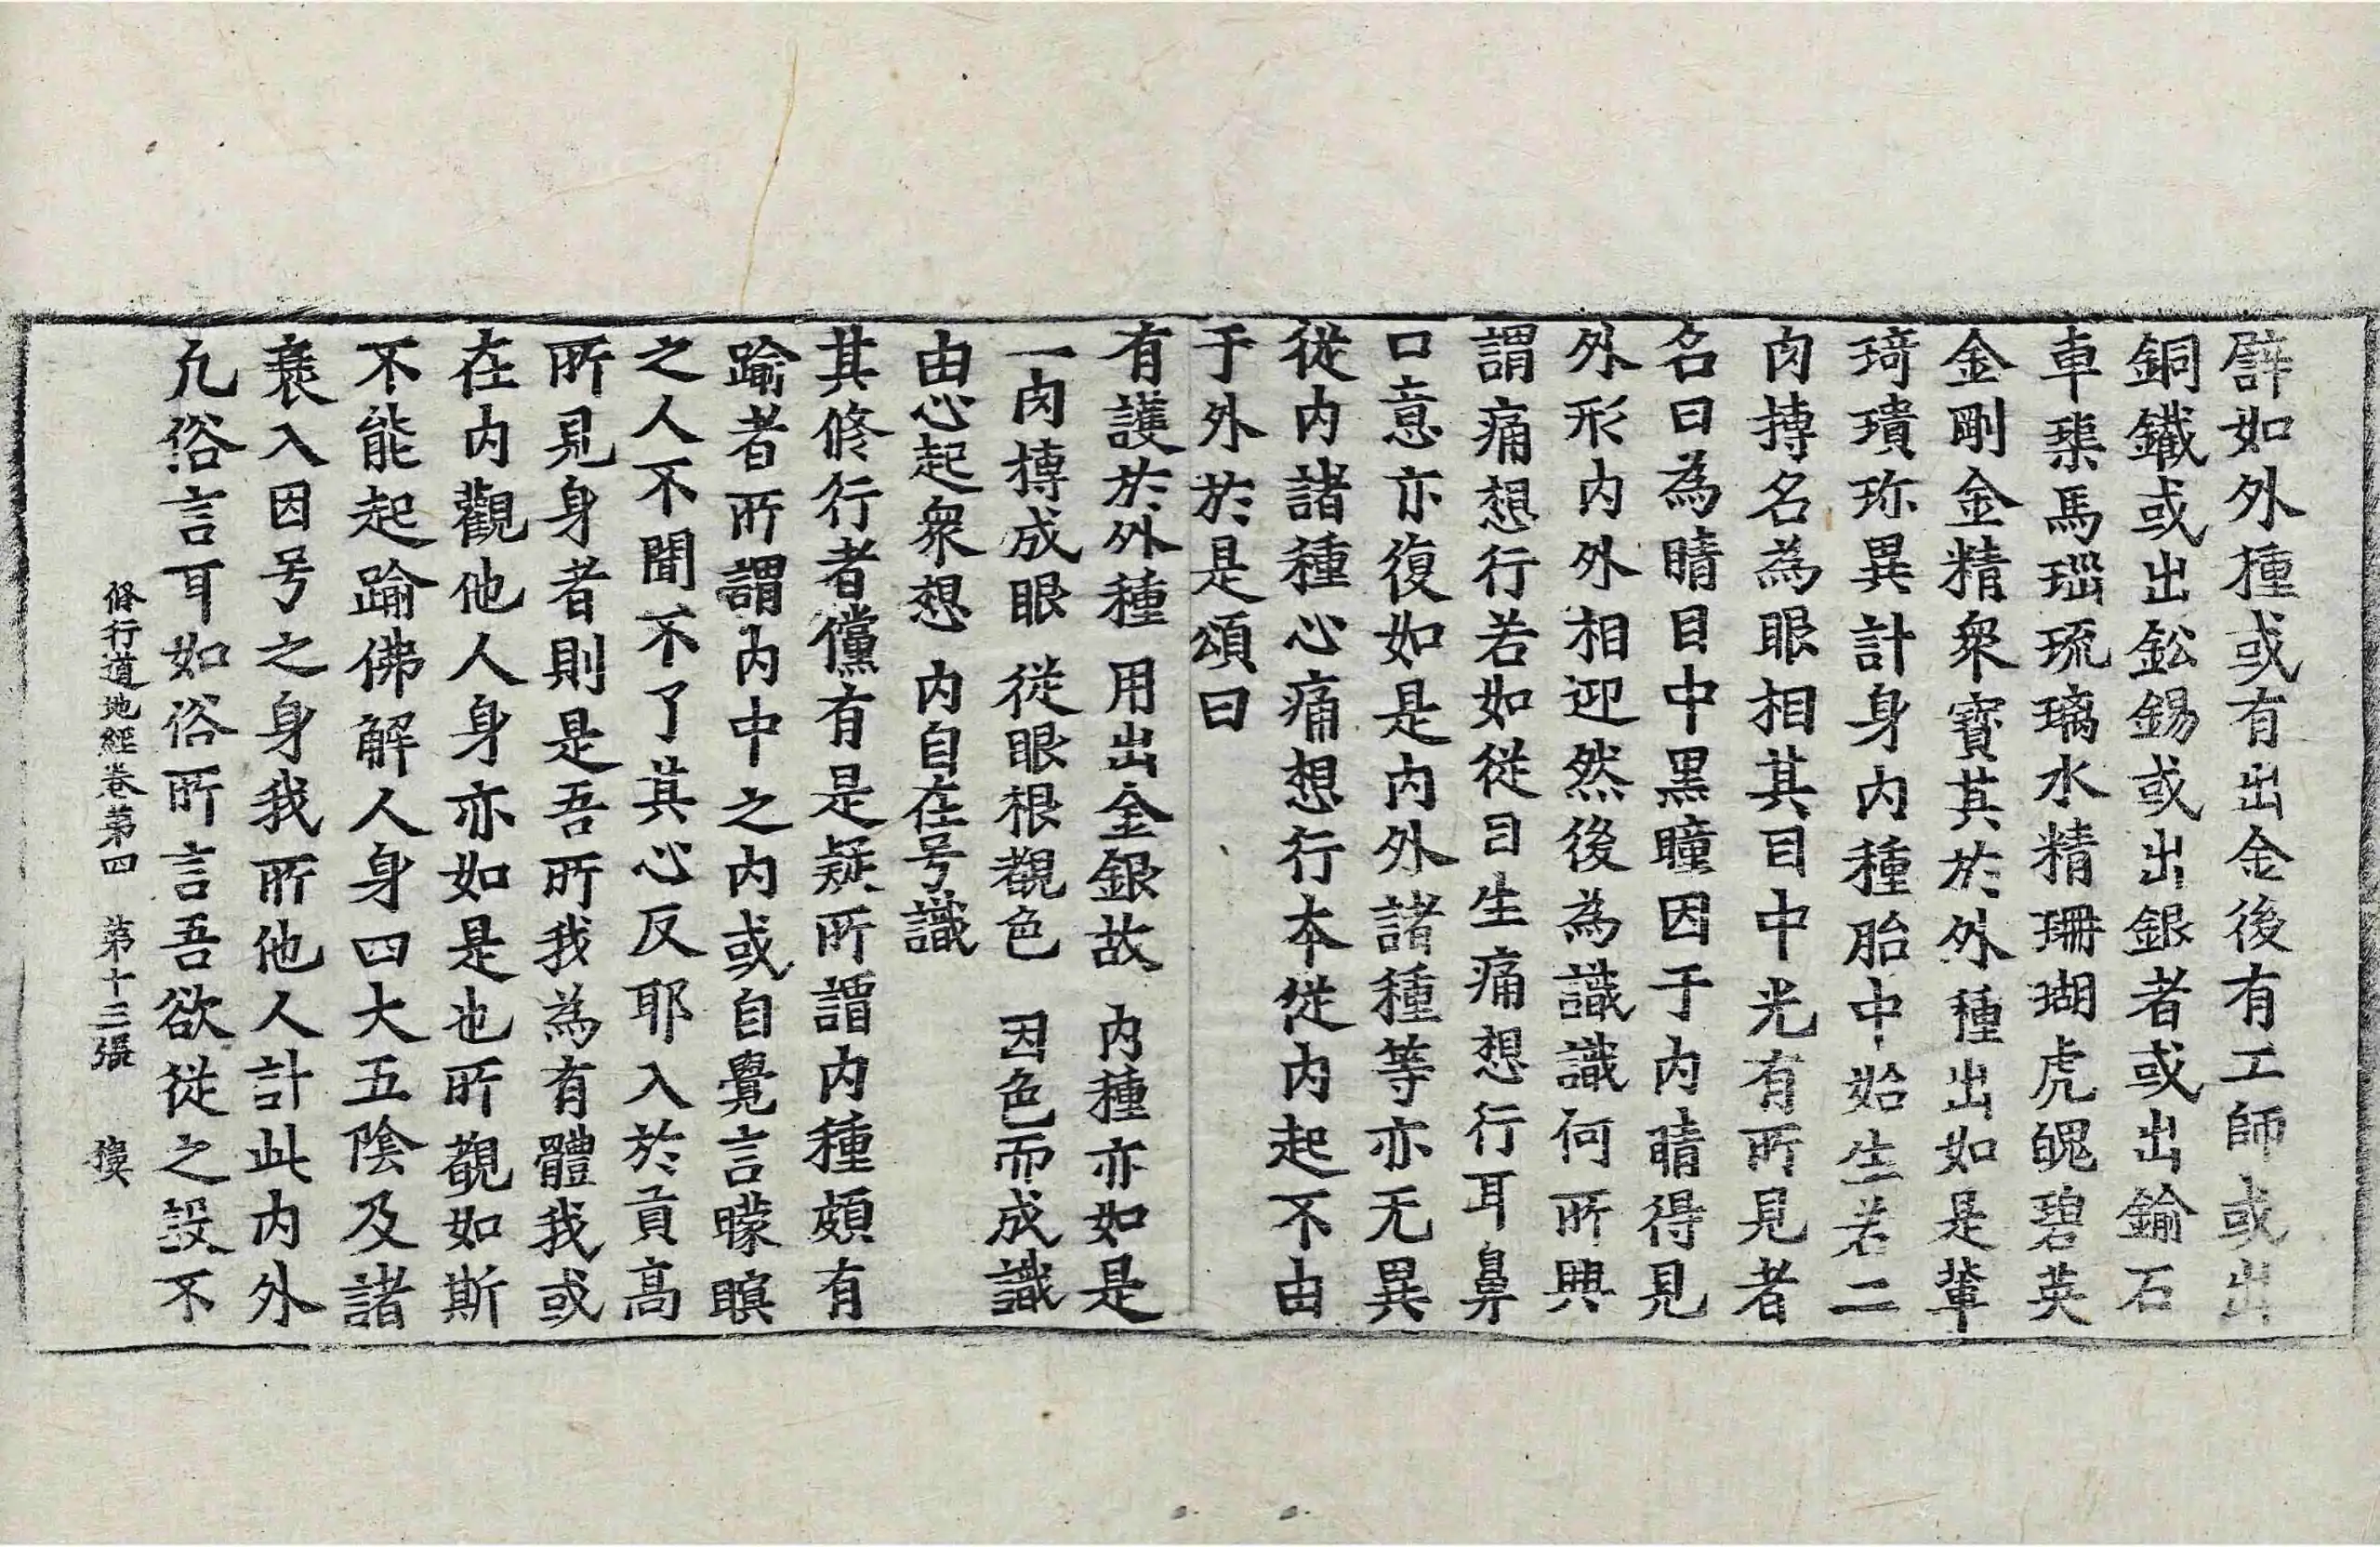 譬如外種或有出金後有工師或出
銅鐵或出鈆錫或出銀者或出鍮石
車𤦲馬瑙琉璃水精珊瑚虎魄碧英
金剛金精衆寶其於外種出如是輩
琦璝珎異計身内種胎中始生若二
肉摶名為眼相其目中光有所見者
名曰為睛目中黑瞳因于内睛得見
外形内外相迎然後為識識何所興
謂痛想行若如從目生痛想行耳鼻
口意亦復如是内外諸種等亦无異
從内諸種心痛想行本從内起不由
于外於是頌曰
有護於外種 用出金銀故 内種亦如是
一肉摶成眼 從眼根覩色 因色而成識
由心起衆想 内自在号識
其修行者儻有是疑所謂内種頗有
踰者所謂内中之内或自覺言曚瞑
之人不聞不了其心反耶入於貢高
所見身者則是吾所我為有體我或
在内觀他人身亦如是也所覩如斯
不能起踰佛解人身四大五陰及諸
衰入因号之身我所他人計此内外
凡俗言耳如俗所言吾欲從之設不
修行道地經卷第四 第十三張